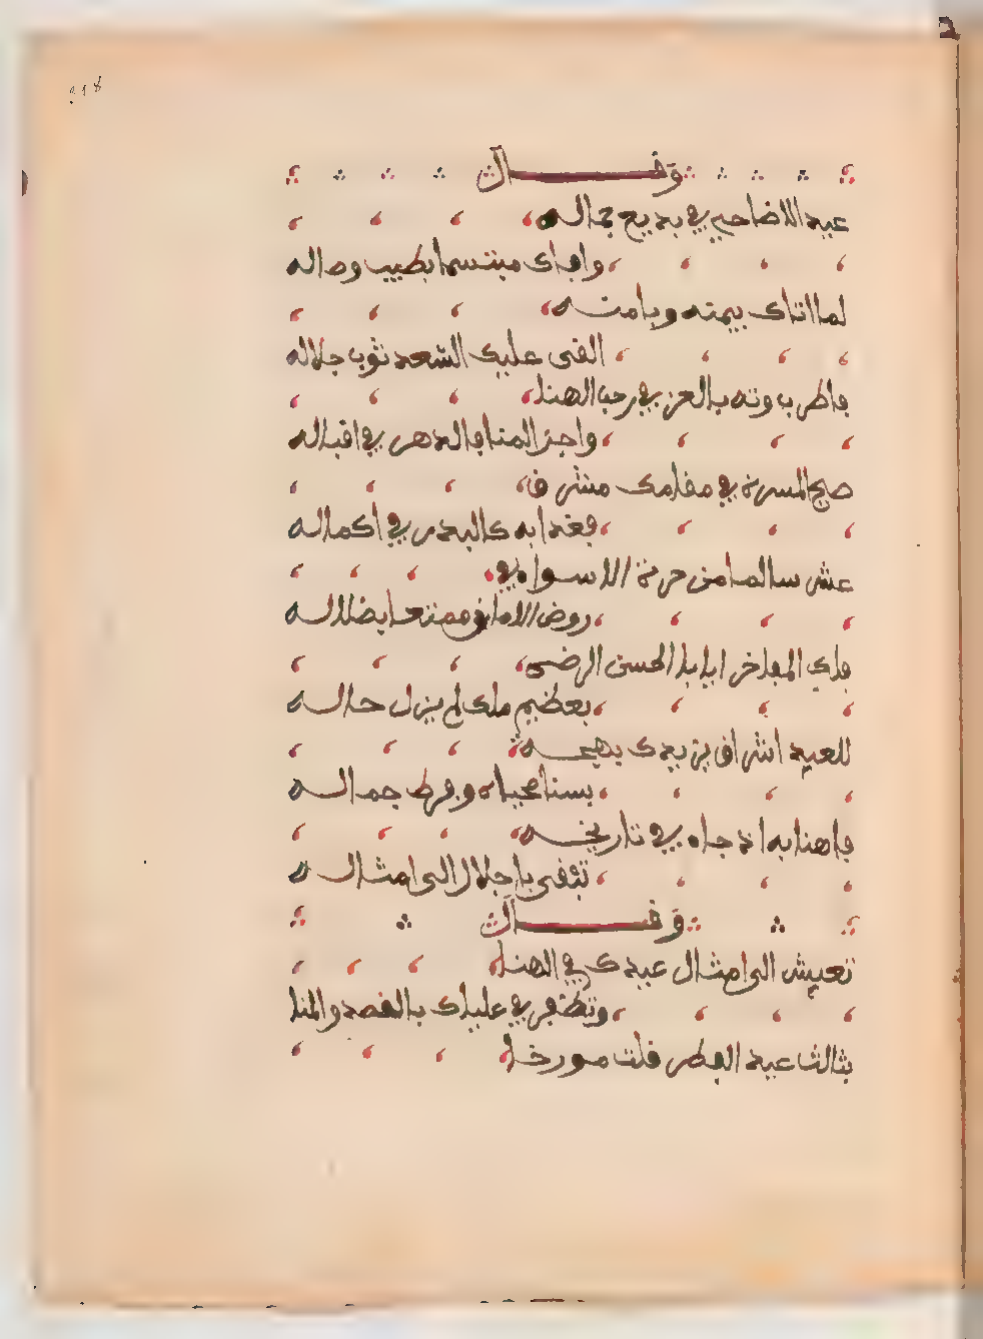 وقال
عيد الاضاحي في بديع جماله
وافاك مبتسما بطيب وصاله
لما اتاك بيمنه وبامنه
القى عليك السعد ثوب جلاله
فاطرب وته بالعز في رحب الهنا
واجن المنا فالدهر في اقباله
صبح المسرة في مقامك مشرق
فغدا به كالبدر في اكماله
عش سالما من حرفة الاسواء في
روض الاماني ممتعا بضلاله
فلك المفاخر يابا الحسن الرضى
بعظيم ملك لم يزل حاله
للعيد اشراق يزيدك بهجه
بسنا محياه وفرط جماله
فاهنا به اذ جاء في تاريخه
تبقى باجلال الى امثاله
وقال
تعيش الى امثال عيدك في الهنا
وتظفر في علياك بالقصد والمنا
بثالث عيد الفطر قلت مورخا